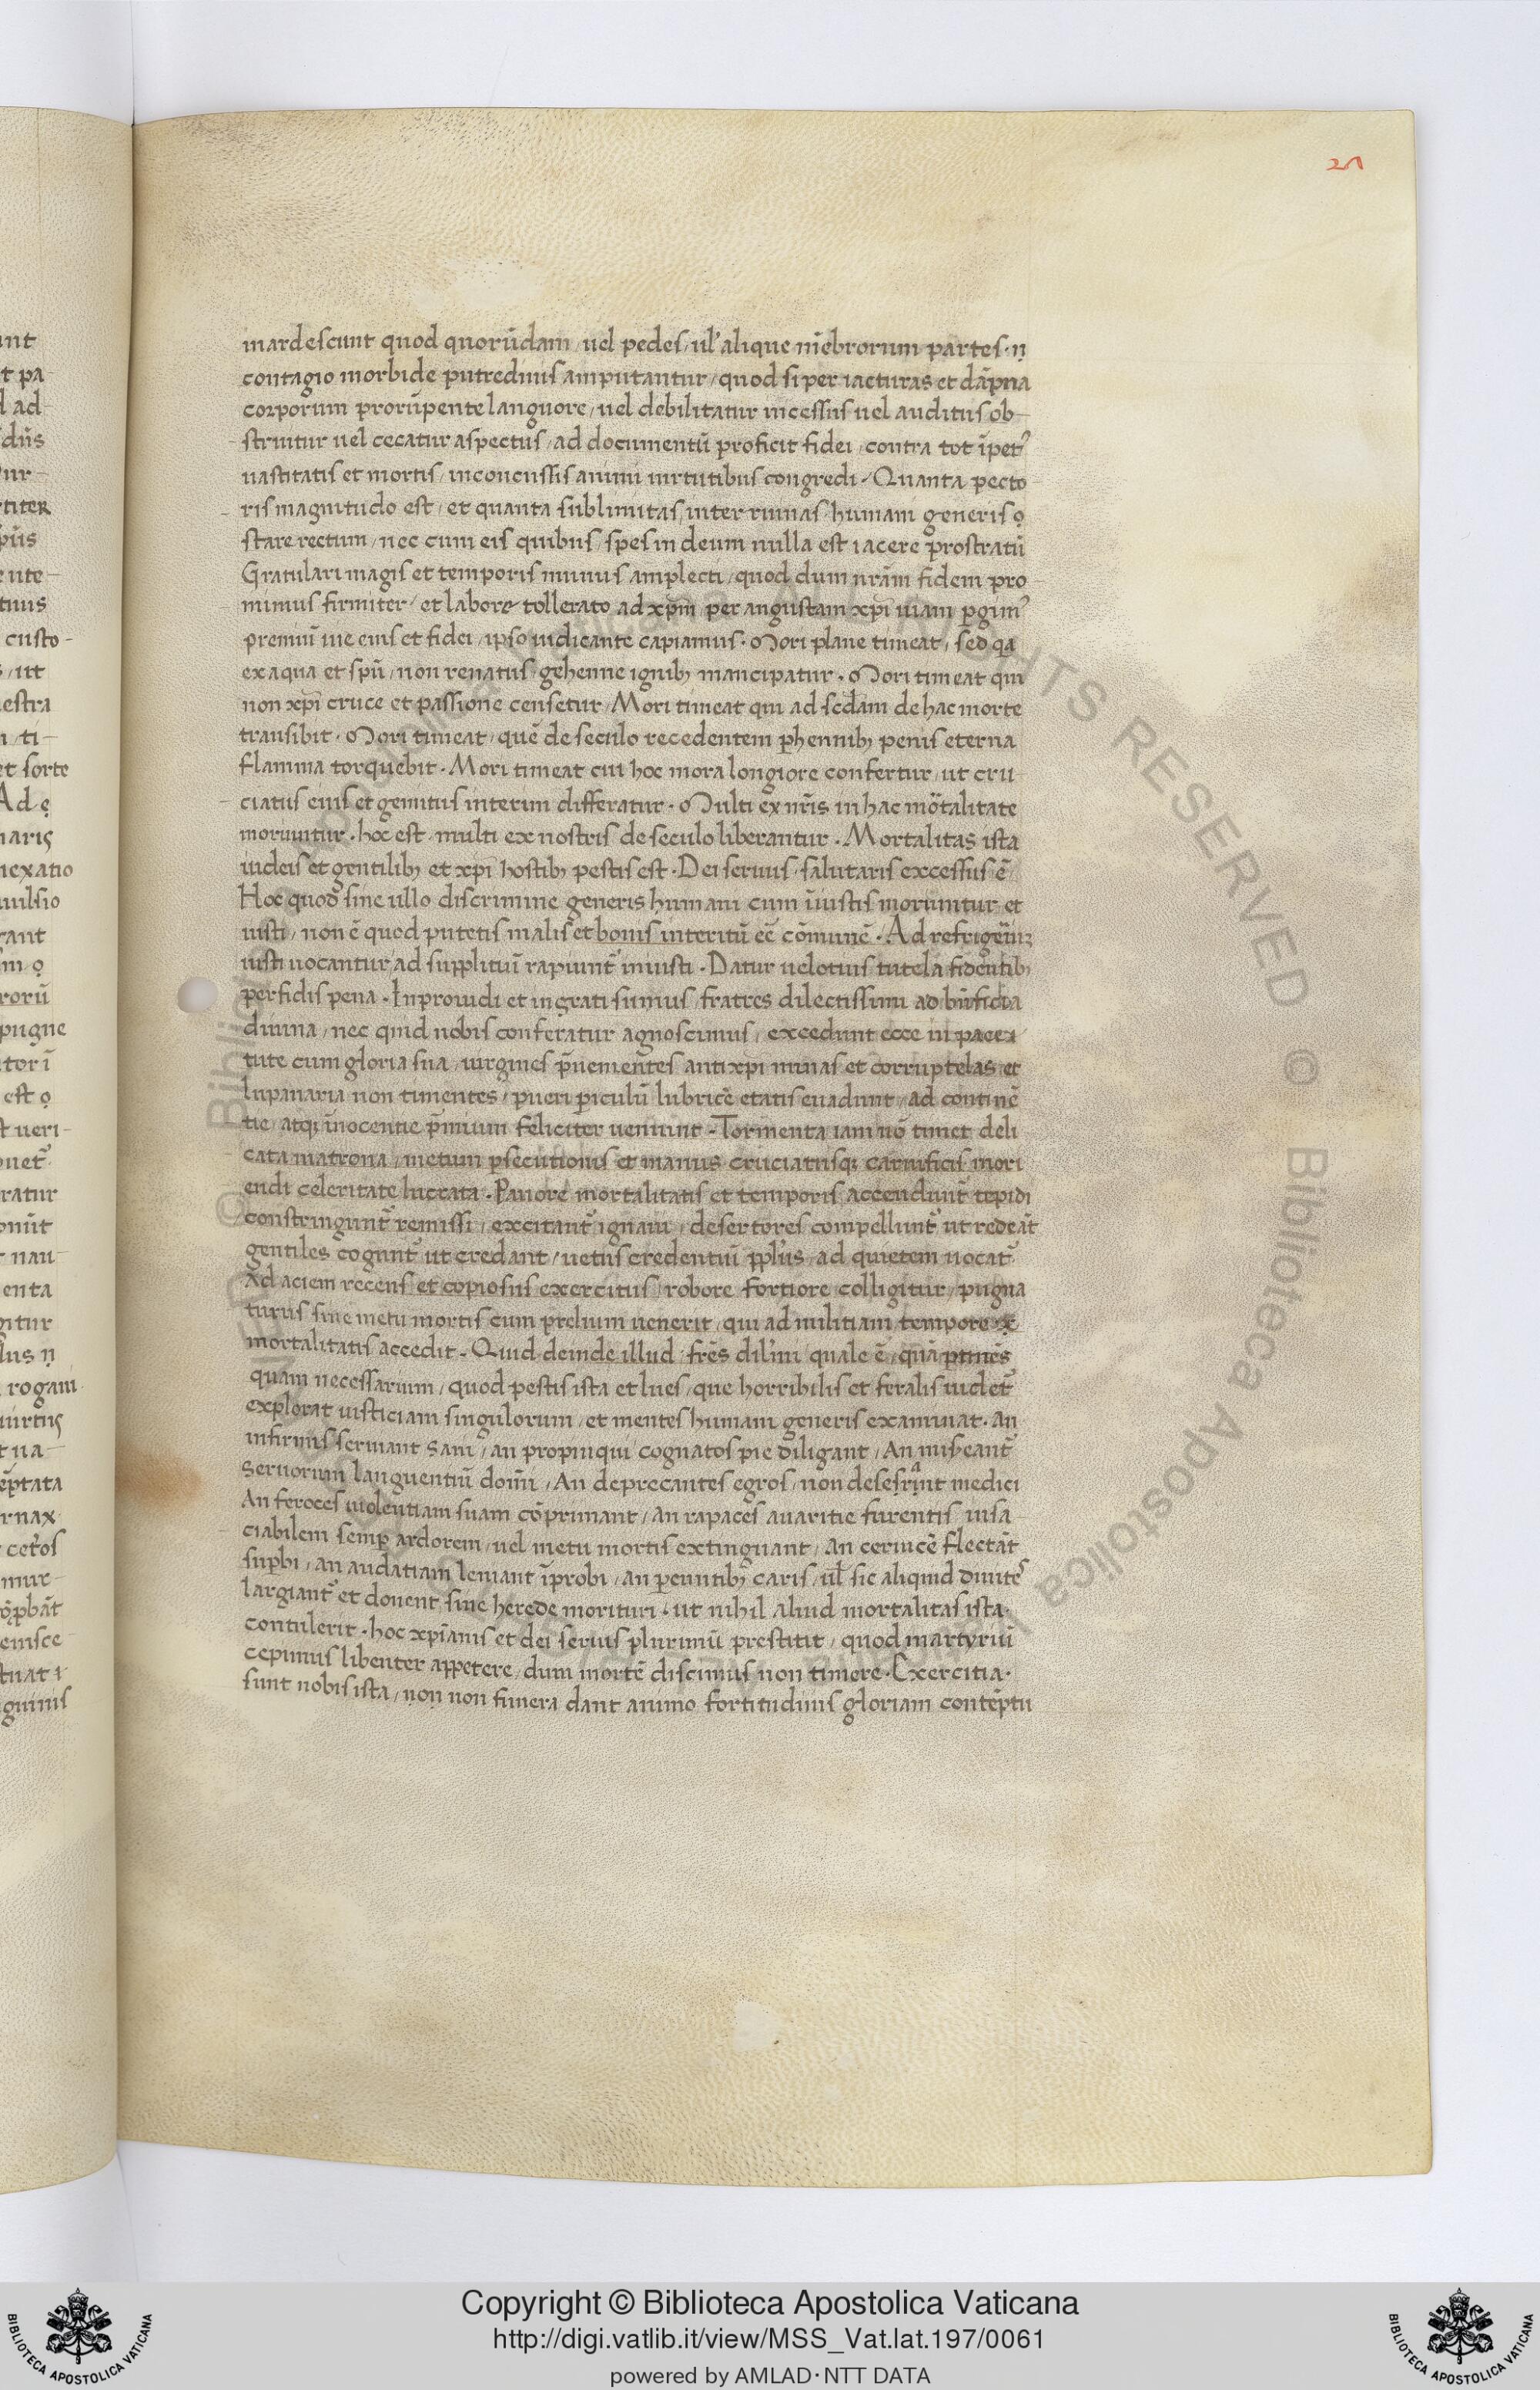 25
inardescunt quod quorūdam / uel pedes / ul' alique mēbrorum partes · ṇ
contagio morbide putredinis amputantur / quod si per iacturas et dāpna
corporum prorūpente languore / uel debilitatur incessus uel auditus ob-
struitur uel cecatur aspectus / ad documentū proficit fidei / contra tot īpet᷒
uastitatis et mortis / inconcussis animi uirtutibus congredi / Quanta pecto
ris magnitudo est / et quanta sublimitas inter ruinas humani generis ọ
stare rectum / nec cum eis quibus spes in deum nulla est iacere prostratū
Gratulari magis et temporis munus amplecti / quod dum nr̄am fidem pro
mimus firmiter / et labore tollerato ad xp̄m per angustam xp̄i uiam ꝑgim᷒
premiū uie eius et fidei / ipso iudicante capiamus · Mori plane timeat / sed qa
ex aqua et spū / non renatus / gehenne ignibꝫ mancipatur · Mori timeat qui
non xp̄i cruce et passione censetur / Mori timeat qui ad scdam de hac morte
transibit · Mori timeat / quē de seculo recedentem ꝑhennibꝫ penis eterna
flamma torquebit · Mori timeat cui hoc mora longiore confertur / ut cru
ciatus eius et gemitus interim differatur · Multi ex nr̄is in hac mōtalitate
moriuntur · hoc est / multi ex nostris de seculo liberantur · Mortalitas ista
iudeis et gentilibꝫ et xp̄i hostibꝫ pestis est · Dei seruus / salutaris excessus ē /
Hoc quod sine ullo discrimine generis humani cum īiustis moriuntur et
iusti / non ē quod putetis malis et bonis interitū eē cōmunē · Ad refrigeriuꝫ
iusti uocantur / ad supplituī rapiunt᷑ iniusti · Datur uelotius tutela fidentibꝫ
perfidis pena · Inprouidi et ingrati sumus / fratres dilectissimi ad bn̄ficia
diuina / nec quid nobis conferatur agnoscimus / excedunt ecce in pace
tute cum gloria sua / uirgines p̄uenientes antixp̄i minas et corruptelas et
lupanaria non timentes / pueri ꝑiculū lubrice etatis euadunt / ad continē
tie atqꝫ īnocentie p̄mium feliciter ueniunt · Tormenta iam nō timet deli
cata matrona / metum ꝑsecutionis et manus cruciatusqꝫ carnificis mori
endi celeritate lucrata · Pauore mortalitatis et temporis accendunt᷑ tepidi
constringunt᷑ remissi / excitant᷑ ignaui / desertores compellunt᷑ ut redeāt
gentiles cogunt᷑ ut credant / uetus credentiū ppl'us ad quietem uocat᷑
Ad aciem recens et copiosus exercitus robore fortiore colligitur / pugna
turus sine metu mortis cum prelium uenerit / qui ad militiam tempore
mortalitatis accedit · Quid deinde illud fr̄es dil'mi quale ē / quā ꝑtinēs
quam necessarium / quod pestis ista et lues / que horribilis et feralis uidet᷑
explorat iusticiam singulorum / et mentes humani generis examinat · an
infirmis seruiant sani / an propinqui cognatos pie diligant / An misereant᷑
seruorum languentiū domī / An deprecantes egros / non deserant medici
An feroces uiolentiam suam cōprimant / an rapaces auaritie furentis insa
ciabilem semꝑ ardorem / uel metu mortis extinguant / An ceruicē flectāt
suꝑbi / an audatiam leniant īprobi / an pereuntibꝫ caris / ul' sic aliquid diuites
largiant᷑ et donent / sine herede morituri · ut nihil aliud mortalitas ista ·
contulerit · hoc xp̄ianis et dei seruis plurimū prestitit / quod martyriū
cepimus libenter appetere / dum mortē discimus non timere · Exercitia ·
sunt nobis ista / non non funera dant animo fortitudinis gloriam contēptu
Copyright © Biblioteca Apostolica Vaticana
http://digi.vatlib.it/view/MSS_Vat.lat.197/0061
powered by AMLAD·NTT DATA
BIBLIOTECA APOSTOLICA VATICANA
BIBLIOTECA APOSTOLICA VATICANA